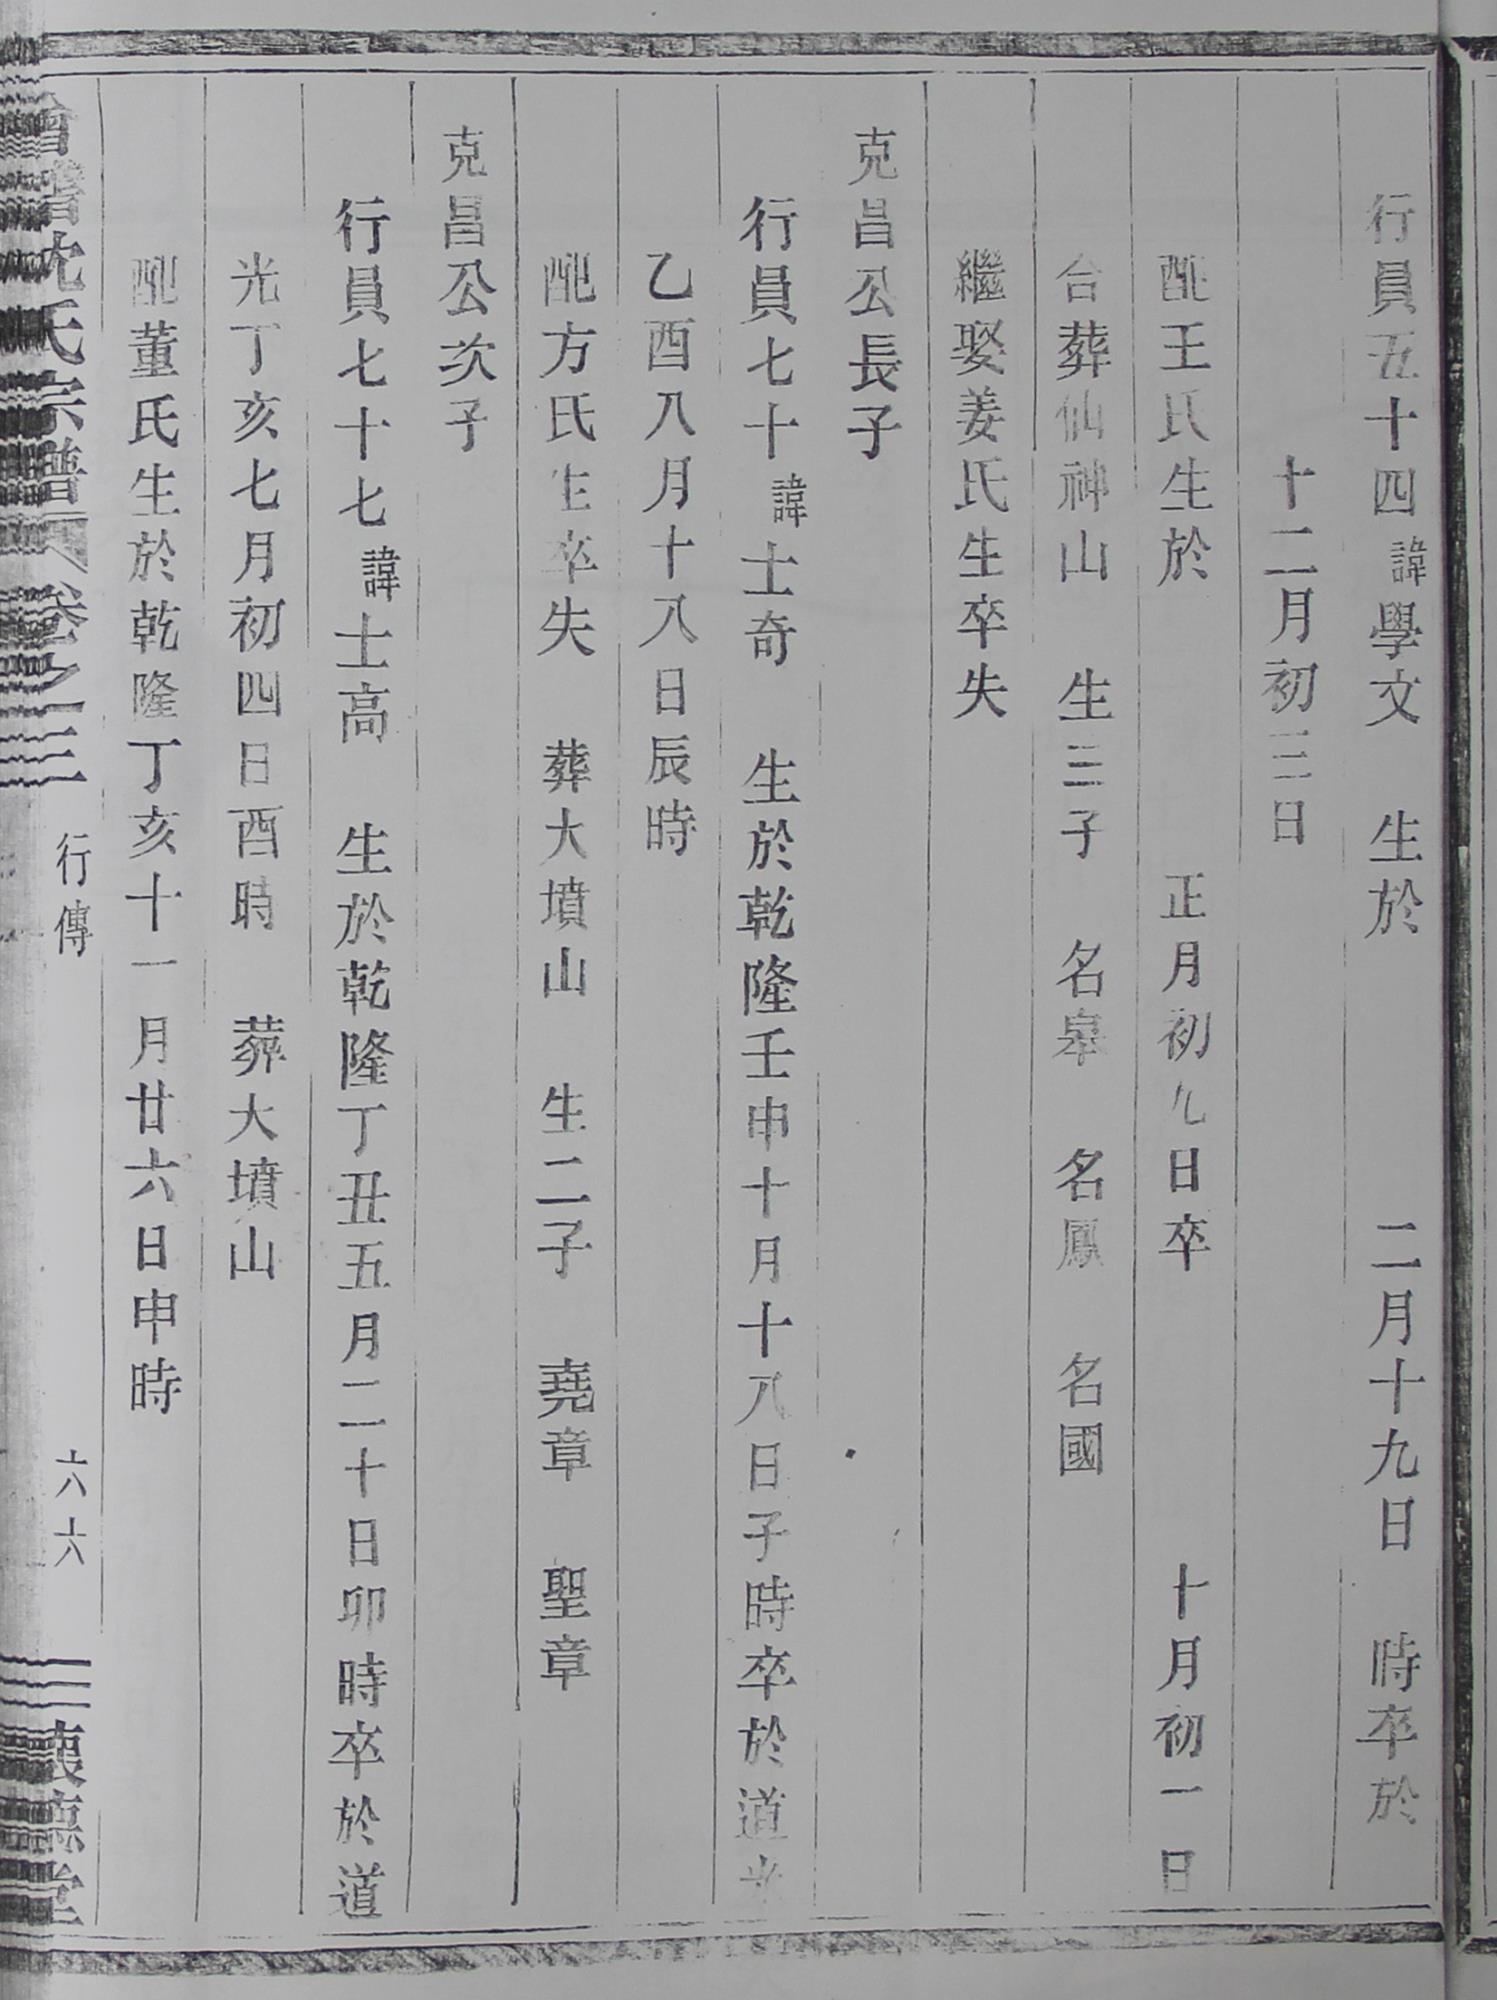 行員五十四諱學文　生於　　　二月十九日　時卒於
十二月初三日
配王氏生於　　　正月初九日卒　　　十月初一日
合葬仙神山　生三子　名皋　名鳳　名國
繼娶姜氏生卒失
克昌公長子
行員七十諱士奇　生於乾隆壬申十月十八日子時卒於道光
乙酉八月十八日辰時
配方氏生卒失　葬大墳山　生二子　堯章　聖章
克昌公次子
行員七十七諱士高　生於乾隆丁丑五月二十日卯時卒於道
光丁亥七月初四日酉時　葬大墳山
配董氏生於乾隆丁亥十一月廿六日申時
沈氏宗譜　卷之三　行傳　六六　德堂